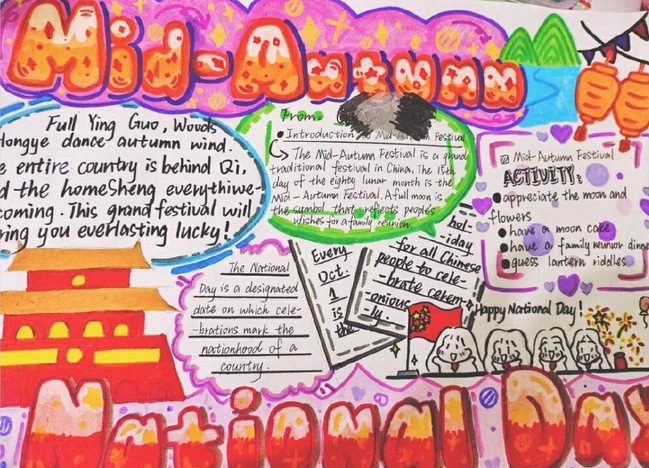 Mid-Autumn
Full Ying Guo, Woods
Hongye dance autumn wind.
e entire country is behind Qi,
d the homeSheng everythiwe-
coming. This grand festival will
ring you everlasting lucky!
From.
Introduction to Mid-Autumn Festival
The Mid-Autumn Festival is a grand
traditional festival in China. The 15th
day of the eighty lunar month is the
Mid-Autumn Festival. A full moon is
the symbol that reflects people's
wishes for a family reunion.
Mid-Autumn Festival
ACTIVITY:
appreciate the moon and
flowers
have a moon cake
have a family reunion dinne
guess lantern riddles
The National
Day is a designated
date on which cele-
brations mark the
nationhood of a
country.
Every
Oct.
1
is
the
hol-
iday
for all Chinese
people to cele-
brate cerem-
onious-
ly.
Happy National Day!
National Day